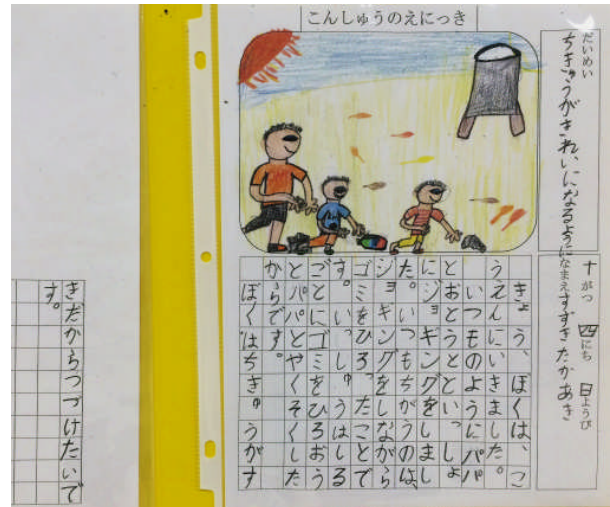 こんしゅうのえにっき
だいめい
ちきゅうがきれいになるように
十がつ四にち日ようび
なまえすずきたかあき
きょう、ぼくは、こ
うえんにいきました。
いつものようにパパ
とおとうとといっしょ
にジョギングをしまし
た。いつもちがうのは、
ジョギングをしながら
ゴミをひろったことで
す。いっしゅうはしる
ごとにゴミをひろおう
とパパとやくそくした
からです。
ぼくはちきゅうがす
きだからつづけたいで
す。